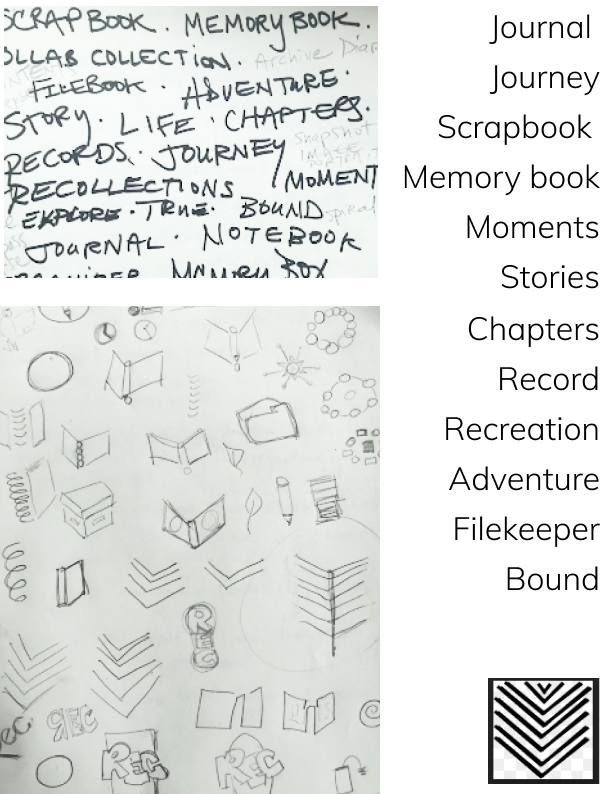 SCRAPBOOK. MEMORY BOOK.
OLLAB COLLECTION. Archive Diar
FILEBOOK. ADVENTURE.
STORY. LIFE. CHAPTERS.
Snapshot
RECORDS. JOURNEY
RECOLLECTIONS MOMENT
EXPLORE. TRUE. BOUND
JOURNAL. NOTEBOOK
MEMORY BOX
REC
REC
REC
REC
Journal
Journey
Scrapbook
Memory book
Moments
Stories
Chapters
Record
Recreation
Adventure
Filekeeper
Bound